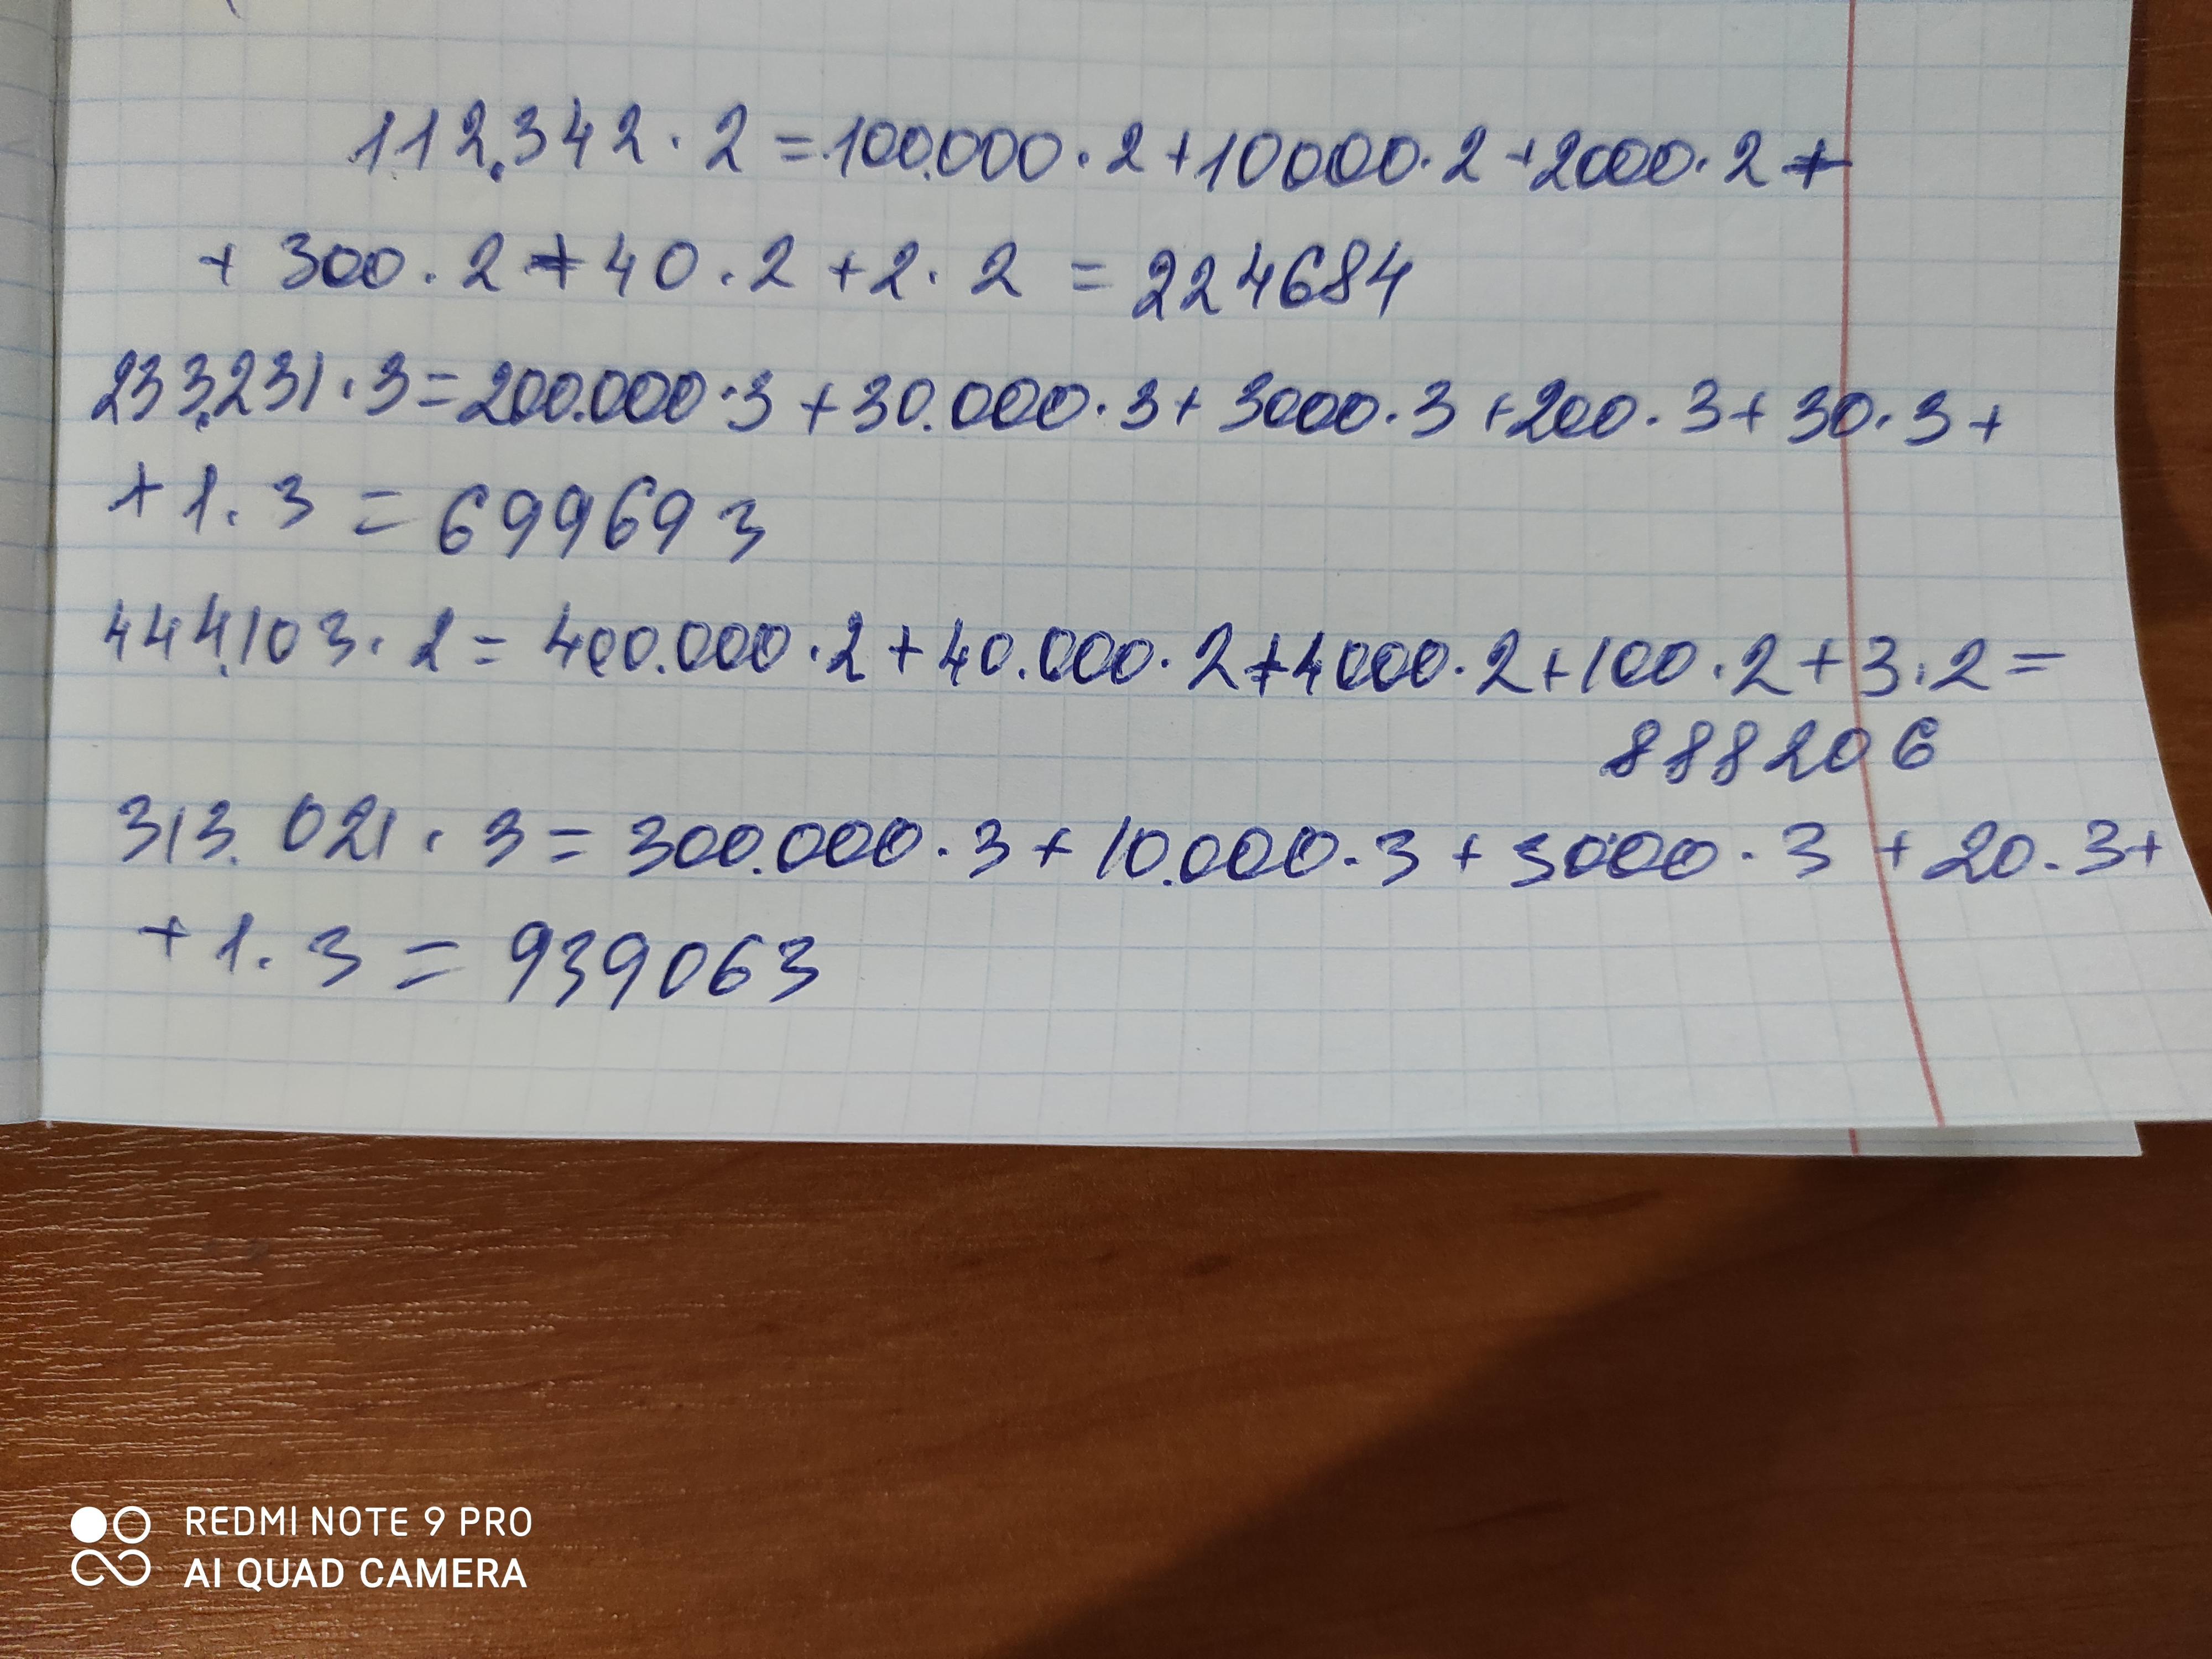 112.342 · 2 = 100.000 · 2 + 10000 · 2 + 2000 · 2 +
+ 300 · 2 + 40 · 2 + 2 · 2 = 224684
233.231 · 3 = 200.000 · 3 + 30.000 · 3 + 3000 · 3 + 200 · 3 + 30 · 3 +
+ 1 · 3 = 699693
444.103 · 2 = 400.000 · 2 + 40.000 · 2 + 4000 · 2 + 100 · 2 + 3 · 2 =
888206
313.021 · 3 = 300.000 · 3 + 10.000 · 3 + 3000 · 3 + 20 · 3 +
+ 1 · 3 = 939063
REDMI NOTE 9 PRO
AI QUAD CAMERA